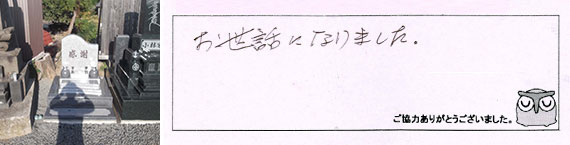 感謝
小林家
お世話になりました。
ご協力ありがとうございました。